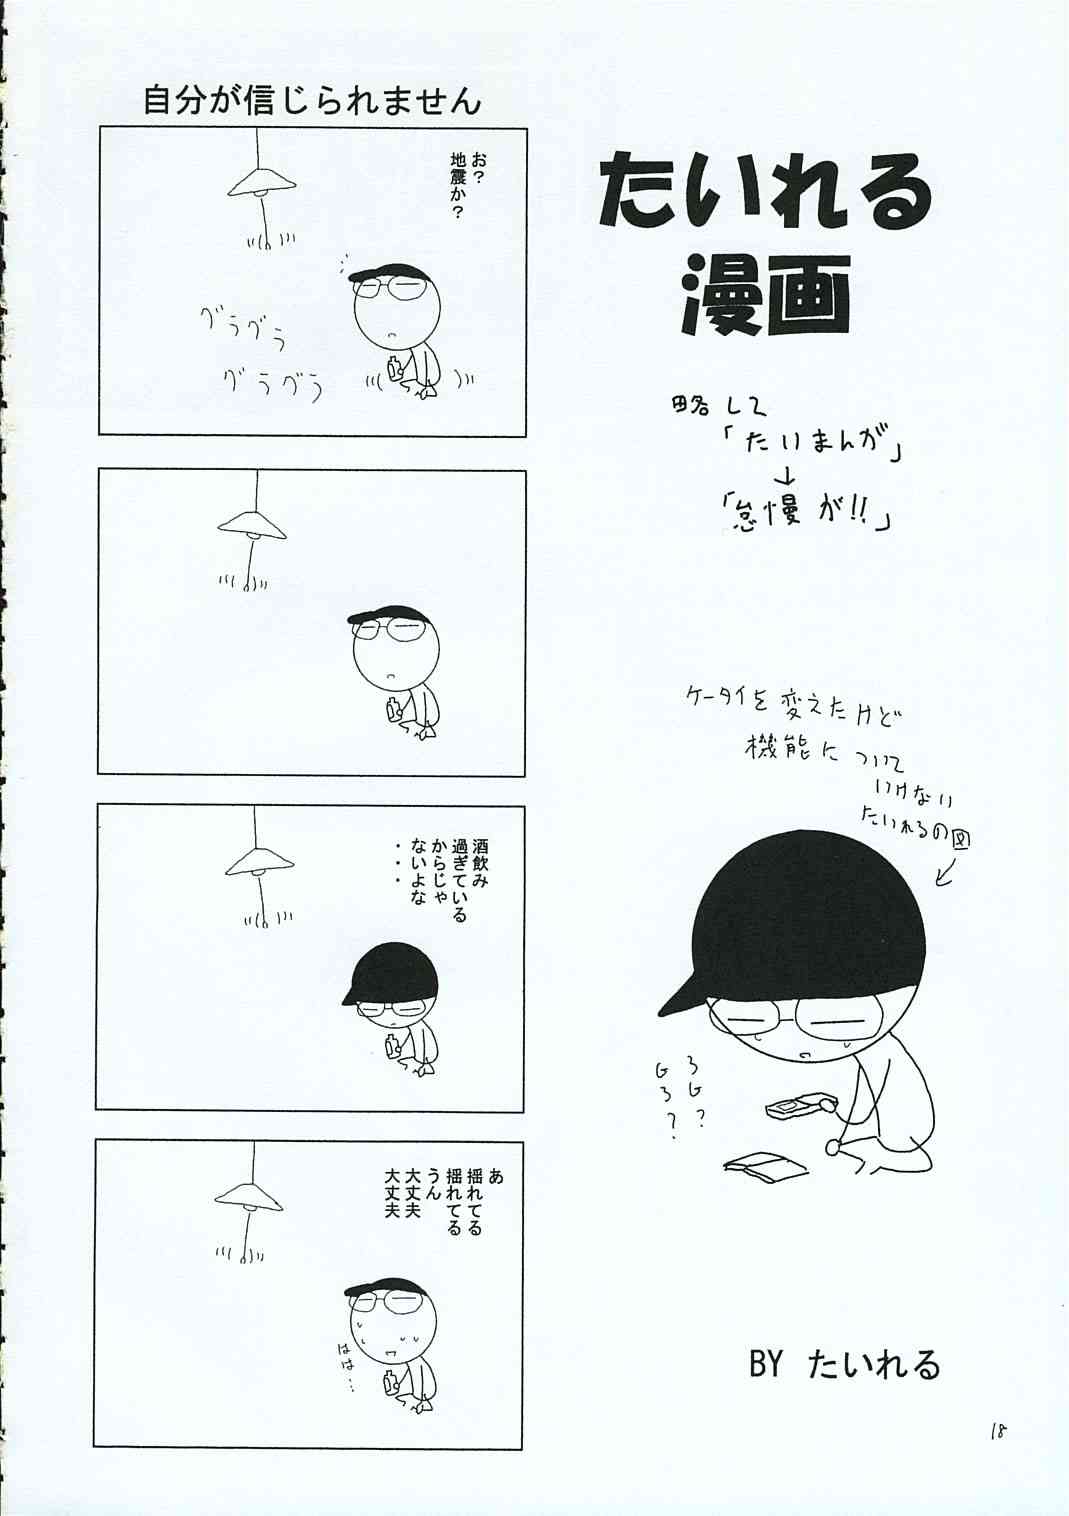 たいれる
漫画
略して
「たいまんが」
↓
「怠慢が!!」
ケータイを変えたけど
機能について
いけない
たいれるの図
3G?
3G?
BY たいれる
自分が信じられません
お?
地震か?
グラグラ
グラグラ
酒飲み
過ぎている
からじゃ
ないよな
・・・
あ
揺れてる
揺れてる
うん
大丈夫
大丈夫
はは…
18